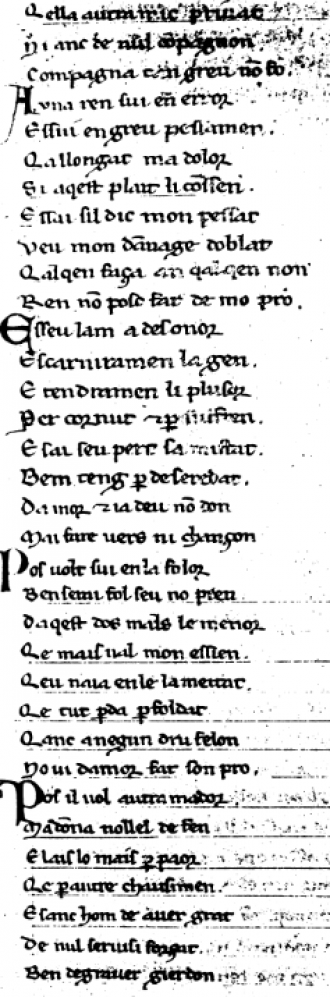 Qella autra nic priuat
Ni anc de nul cōpagnon
Compagna tan greu nō fo.
A vna ren sui en error
Essui en greu pessamen.
Qallongat ma dolor
Si aqest plait li cōssen.
E ssai sil dic mon pessat
Veu mon dānage doblat
Qalqen faça an qalqen non
Ren nō posc far de mo pro.
E sseu lam a desonor
Escarniramen la gen.
E tendramen li plusor
Per cornut ⁊ ꝑ suffren.
E sai seu pert sa mistat.
Bem teng ꝑ deseretat.
Damor ⁊ ia deu nō don
Mai faire uers ni chançon
Pos uolt sui en la folor
Ben serai fol seu no pren
Daqest dos mals le menor
Qe mais ual mon essien.
Qeu naia en le la meitat.
Qe tut ꝑda ꝑ foldat
Qanc a negun dru felon
No ui damor far son pro.
Pos il uol autramador
Madōna nollel defen
E lais lo mais ꝑ paor
Qe ꝑ autre chausimen.
E sanc hom de auer grat
De nul seruisi forçat.
Ben degrauer guierdon